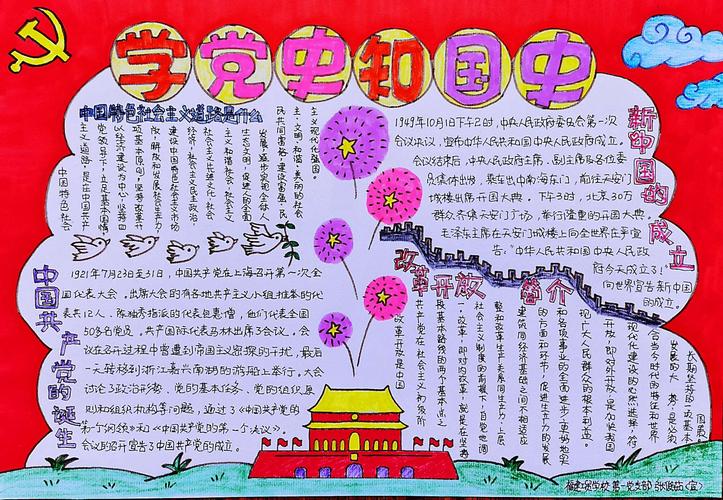 学党史知国史
中国特色社会主义道路是什么
中国特色社会
主义道路,是在中国共产
党领导下,立足基本国情,
以经济建设为中心,坚持四
项基本原则,坚持改革开
放,解放和发展社会生产力,
建设中国特色社会主义市场
经济、社会主义民主政治、
社会主义先进文化、社会
主义和谐社会、社会主义
生态文明,促进人的全面
发展,逐步实现全体人
民共同富裕,建设富强、民
主、文明、和谐、美丽的社会
主义现代化强国。
新中国的成立
1949年10月1日下午2时,中央人民政府委员会第一次
会议决议,宣布中华人民共和国中央人民政府成立。
会议结束后,中央人民政府主席、副主席及各位委
员集体出发,乘车出中南海东门,前往天安门
城楼出席开国大典。下午3时,北京30万
群众齐集天安门广场,举行隆重的开国大典。
毛泽东主席在天安门城楼上向全世界庄重宣
告:"中华人民共和国中央人民政
府今天成立了!"
向世界宣告新中国
的成立。
中国共产党的诞生
1921年7月23日至31日,中国共产党在上海召开第一次全
国代表大会。出席大会的有各地共产主义小组推举的代
表共12人,陈独秀指派的代表包惠僧,他们代表全国
50多名党员。共产国际代表马林出席了会议。会
议在召开过程中曾遭到帝国主义密探的干扰,最后
一天转移到浙江嘉兴南湖的游船上举行。大会
讨论了政治形势、党的基本任务、党的组织原
则和组织机构等问题,通过了《中国共产党的
第一个纲领》和《中国共产党的第一个决议》。
会议的召开宣告了中国共产党的成立。
改革开放简介
改革开放是中国
共产党在社会主义初级阶
段基本路线的两个基本点之
一。改革,即对内改革,就是在坚持
社会主义制度的前提下,自觉地调
整和改革生产关系同生产力、上层
建筑同经济基础之间不相适应
的方面和环节,促进生产力的发展
和各项事业的全面进步,更好地实
现广大人民群众的根本利益。
开放,即对外开放,是加快我国
现代化建设的必然选择,符
合当今时代的特征和世界
发展的大势,是必须
长期坚持的一项基本
国策。
第一党支部